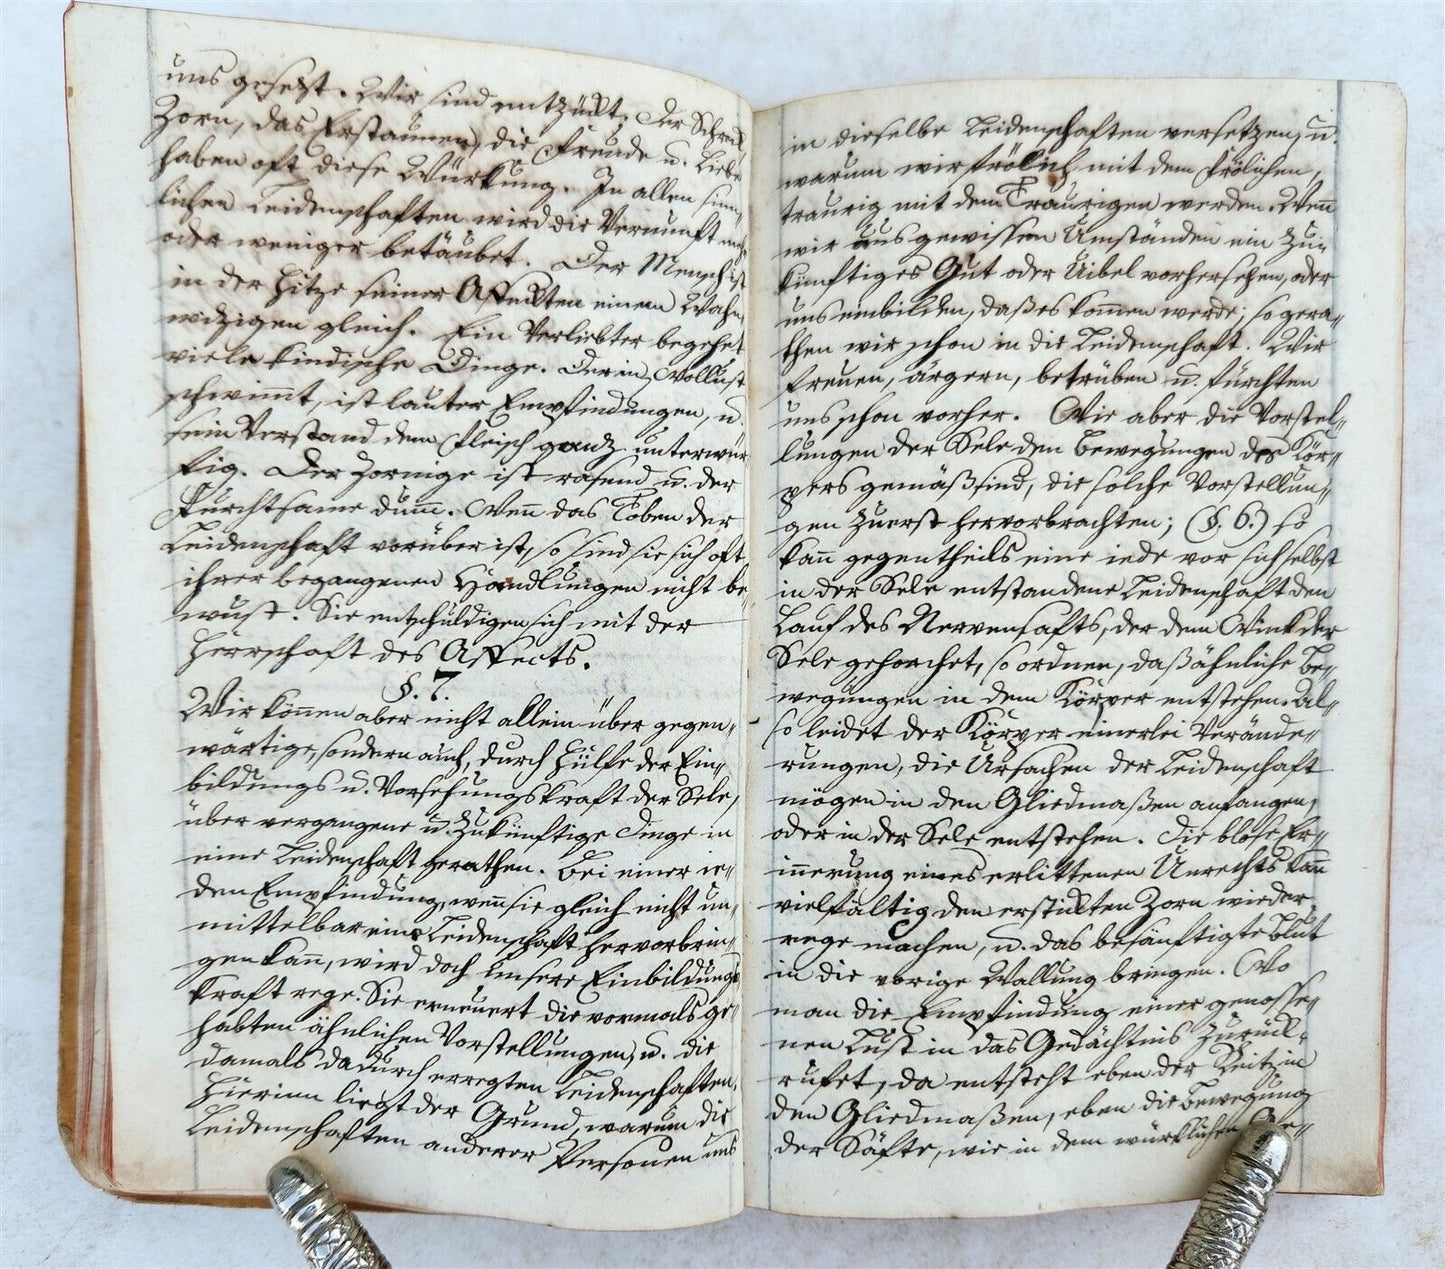 uns gesetzt. Wir sind entzükt. Der Schrek
Zorn, das Erstaunen, die Freude u. Liebe
haben oft diese Würkung. In allen sinn-
lichen Leidenschaften wird die Vernunft mehr
oder weniger betäubet. Der Mensch ist
in der Hitze seiner Affekten einem Wahn-
witzigen gleich. Ein Verliebter begehet
viele kindische Dinge. Der in Wollust
schwim̄t, ist lauter Empfindungen, u.
sein Verstand dem Fleisch ganz unterwür-
fig. Der Zornige ist rasend u. der
Furchtsame dum̄. Wen̄ das Toben der
Leidenschaft vorüber ist, so sind sie sich oft
ihrer begangenen Handlungen nicht be-
wust. Sie entschuldigen sich mit der
Herrschaft des Affects.
§. 7.
Wir können aber nicht allein über gegen-
wärtige, sondern auch, durch Hülfe der Ein-
bildungs u. Vorsehungskraft der Sele,
über vergangene u. zukünftige Dinge in
eine Leidenschaft gerathen. Bei einer ie-
den Empfindung, wen̄ sie gleich nicht un-
mittelbar eine Leidenschaft hervorbrin-
gen kan̄, wird doch unsere Einbildungs
kraft rege. Sie erneuert die vormals ge-
habten ähnlichen Vorstellungen, u. die
damals dadurch erregten Leidenschaften.
Hierinn liegt der Grund, warum die
Leidenschaften anderer Personen uns
in dieselbe Leidenschaften versetzen, u.
warum wir frölich mit dem Frölichen,
traurig mit dem Traurigen werden. Wen̄
wir aus gewissen Umständen ein zu-
künftiges Gut oder Uibel vorhersehen, oder
uns einbilden, daß es kom̄en werde; so gera-
then wir schon in die Leidenschaft. Wir
freuen, ärgern, betrüben u. fürchten
uns schon vorher. Wie aber die Vorstel-
lungen der Sele den Bewegungen des Kör-
pers gemäß sind, die solche Vorstellun-
gen zuerst hervorbrachten; (§. 6.) so
kan̄ gegentheils eine iede vor sich selbst
in der Sele entstandene Leidenschaft den
Lauf des Nervensafts, der dem Wink der
Sele gehorchet, so ordnen, daß ähnliche Be-
wegungen in dem Körper entstehen. Al-
so leidet der Körper einerlei Verände-
rungen, die Ursachen der Leidenschaft
mögen in den Gliedmaßen anfangen,
oder in der Sele entstehen. Die blose Er-
in̄erung eines erlittenen Unrechts kan̄
vielfältig den erstikten Zorn wieder
rege machen, u. das besänftigte Blut
in die vorige Wallung bringen. Wo
man die Empfindung einer genosse-
nen Lust in das Gedächtnis zurük-
rufet, da entsteht eben der Reitz in
den Gliedmaßen, eben die Bewegung
der Säfte, wie in dem würklichen Ge-